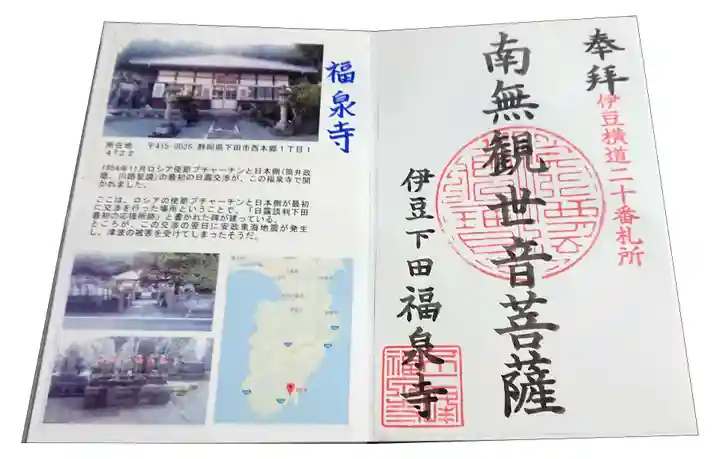 福泉寺
所在地　〒415-0026 静岡県下田市西本郷1丁目1
4?22
1854年11月ロシア使節プチャーチンと日本側(筒井政
憲、川路聖謨)の最初の日露交渉が、この福泉寺で開
かれました。
ここは、ロシアの使節プチャーチンと日本側が最初
に交渉を行った場所ということで、「日露談判下田
最初の応接所跡」と書かれた碑が建っている。
ところが、この交渉の翌日に安政東海地震が発生
し、津波の被害を受けてしまったそうだ。
奉拝
伊豆横道二十番札所
南無観世音菩薩
伊豆下田福泉寺